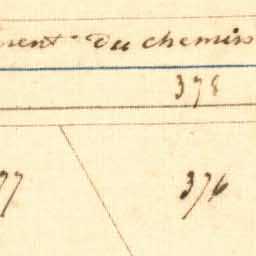 Du chemin
378
77 376